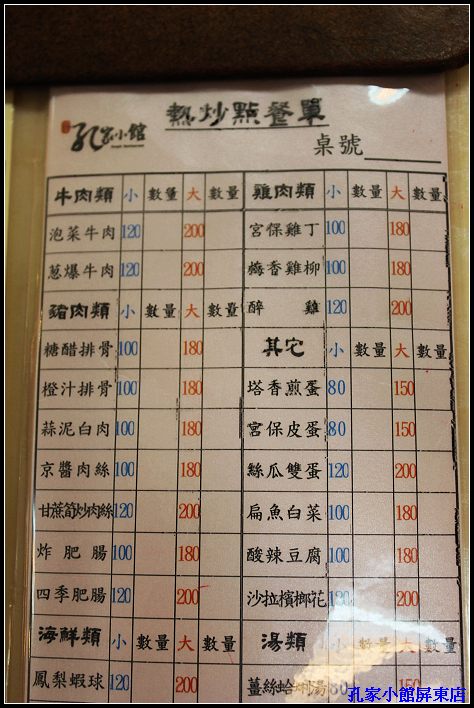 孔家小館
熱炒點餐單
桌號
牛肉類 小 數量 大 數量 雞肉類 小 數量 大 數量
泡菜牛肉 120 200 宮保雞丁 100 180
蔥爆牛肉 120 200 梅香雞柳 100 180
豬肉類 小 數量 大 數量 醉雞 120 200
糖醋排骨 100 180 其它 小 數量 大 數量
橙汁排骨 100 180 塔香煎蛋 80 150
蒜泥白肉 100 180 宮保皮蛋 80 150
京醬肉絲 100 180 絲瓜雙蛋 120 200
甘蔗筍炒肉絲 120 200 扁魚白菜 100 180
炸肥腸 100 180 酸辣豆腐 100 180
四季肥腸 120 200 沙拉檳榔花 130 200
海鮮類 小 數量 大 數量 湯類 小 數量 大 數量
鳳梨蝦球 120 200 薑絲蛤蜊湯 80 150
孔家小館屏東店